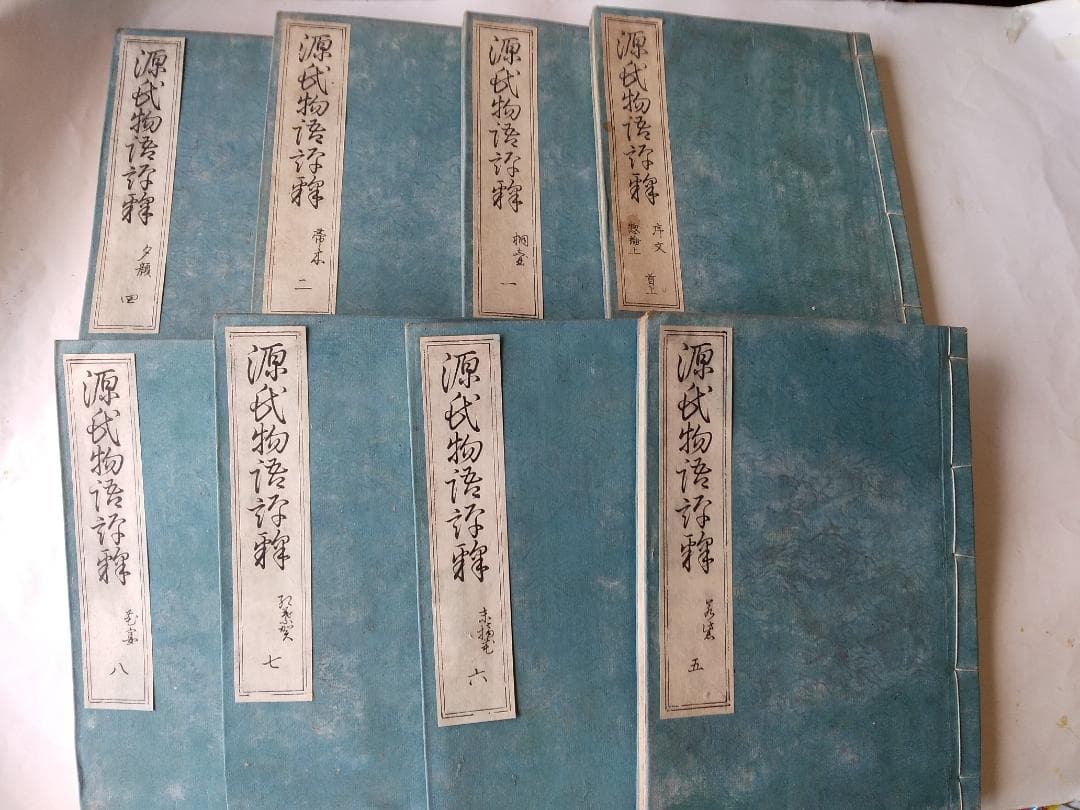 源氏物語評釋
序文
惣論上
首上
源氏物語評釋
桐壺
一
源氏物語評釋
帚木
二
源氏物語評釋
夕顔
四
源氏物語評釋
若紫
五
源氏物語評釋
末摘花
六
源氏物語評釋
紅葉賀
七
源氏物語評釋
花宴
八